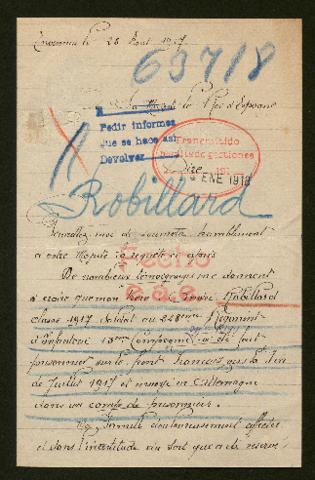 le 28 Août 1917
63718
Sa Majesté le Roi d'Espagne
Pedir informes
que se hace así
Devolver
Transmitido
Sire
ENE 1918
Robillard
Veuillez moi de soumettre humblement
à votre Majesté la requête ci
Fecho
De nombreux témoignages me donnent
à croire que mon frère Robillard
classe 1917 soldat au 228eme Régiment
d'Infanterie Compagnie a été fait
prisonnier sur le front français vers la fin
de Juillet 1917 et envoyé en Allemagne
dans un camp de prisonniers.
Ma famille douloureusement affectée
et dans l'incertitude du sort qui a été réservé